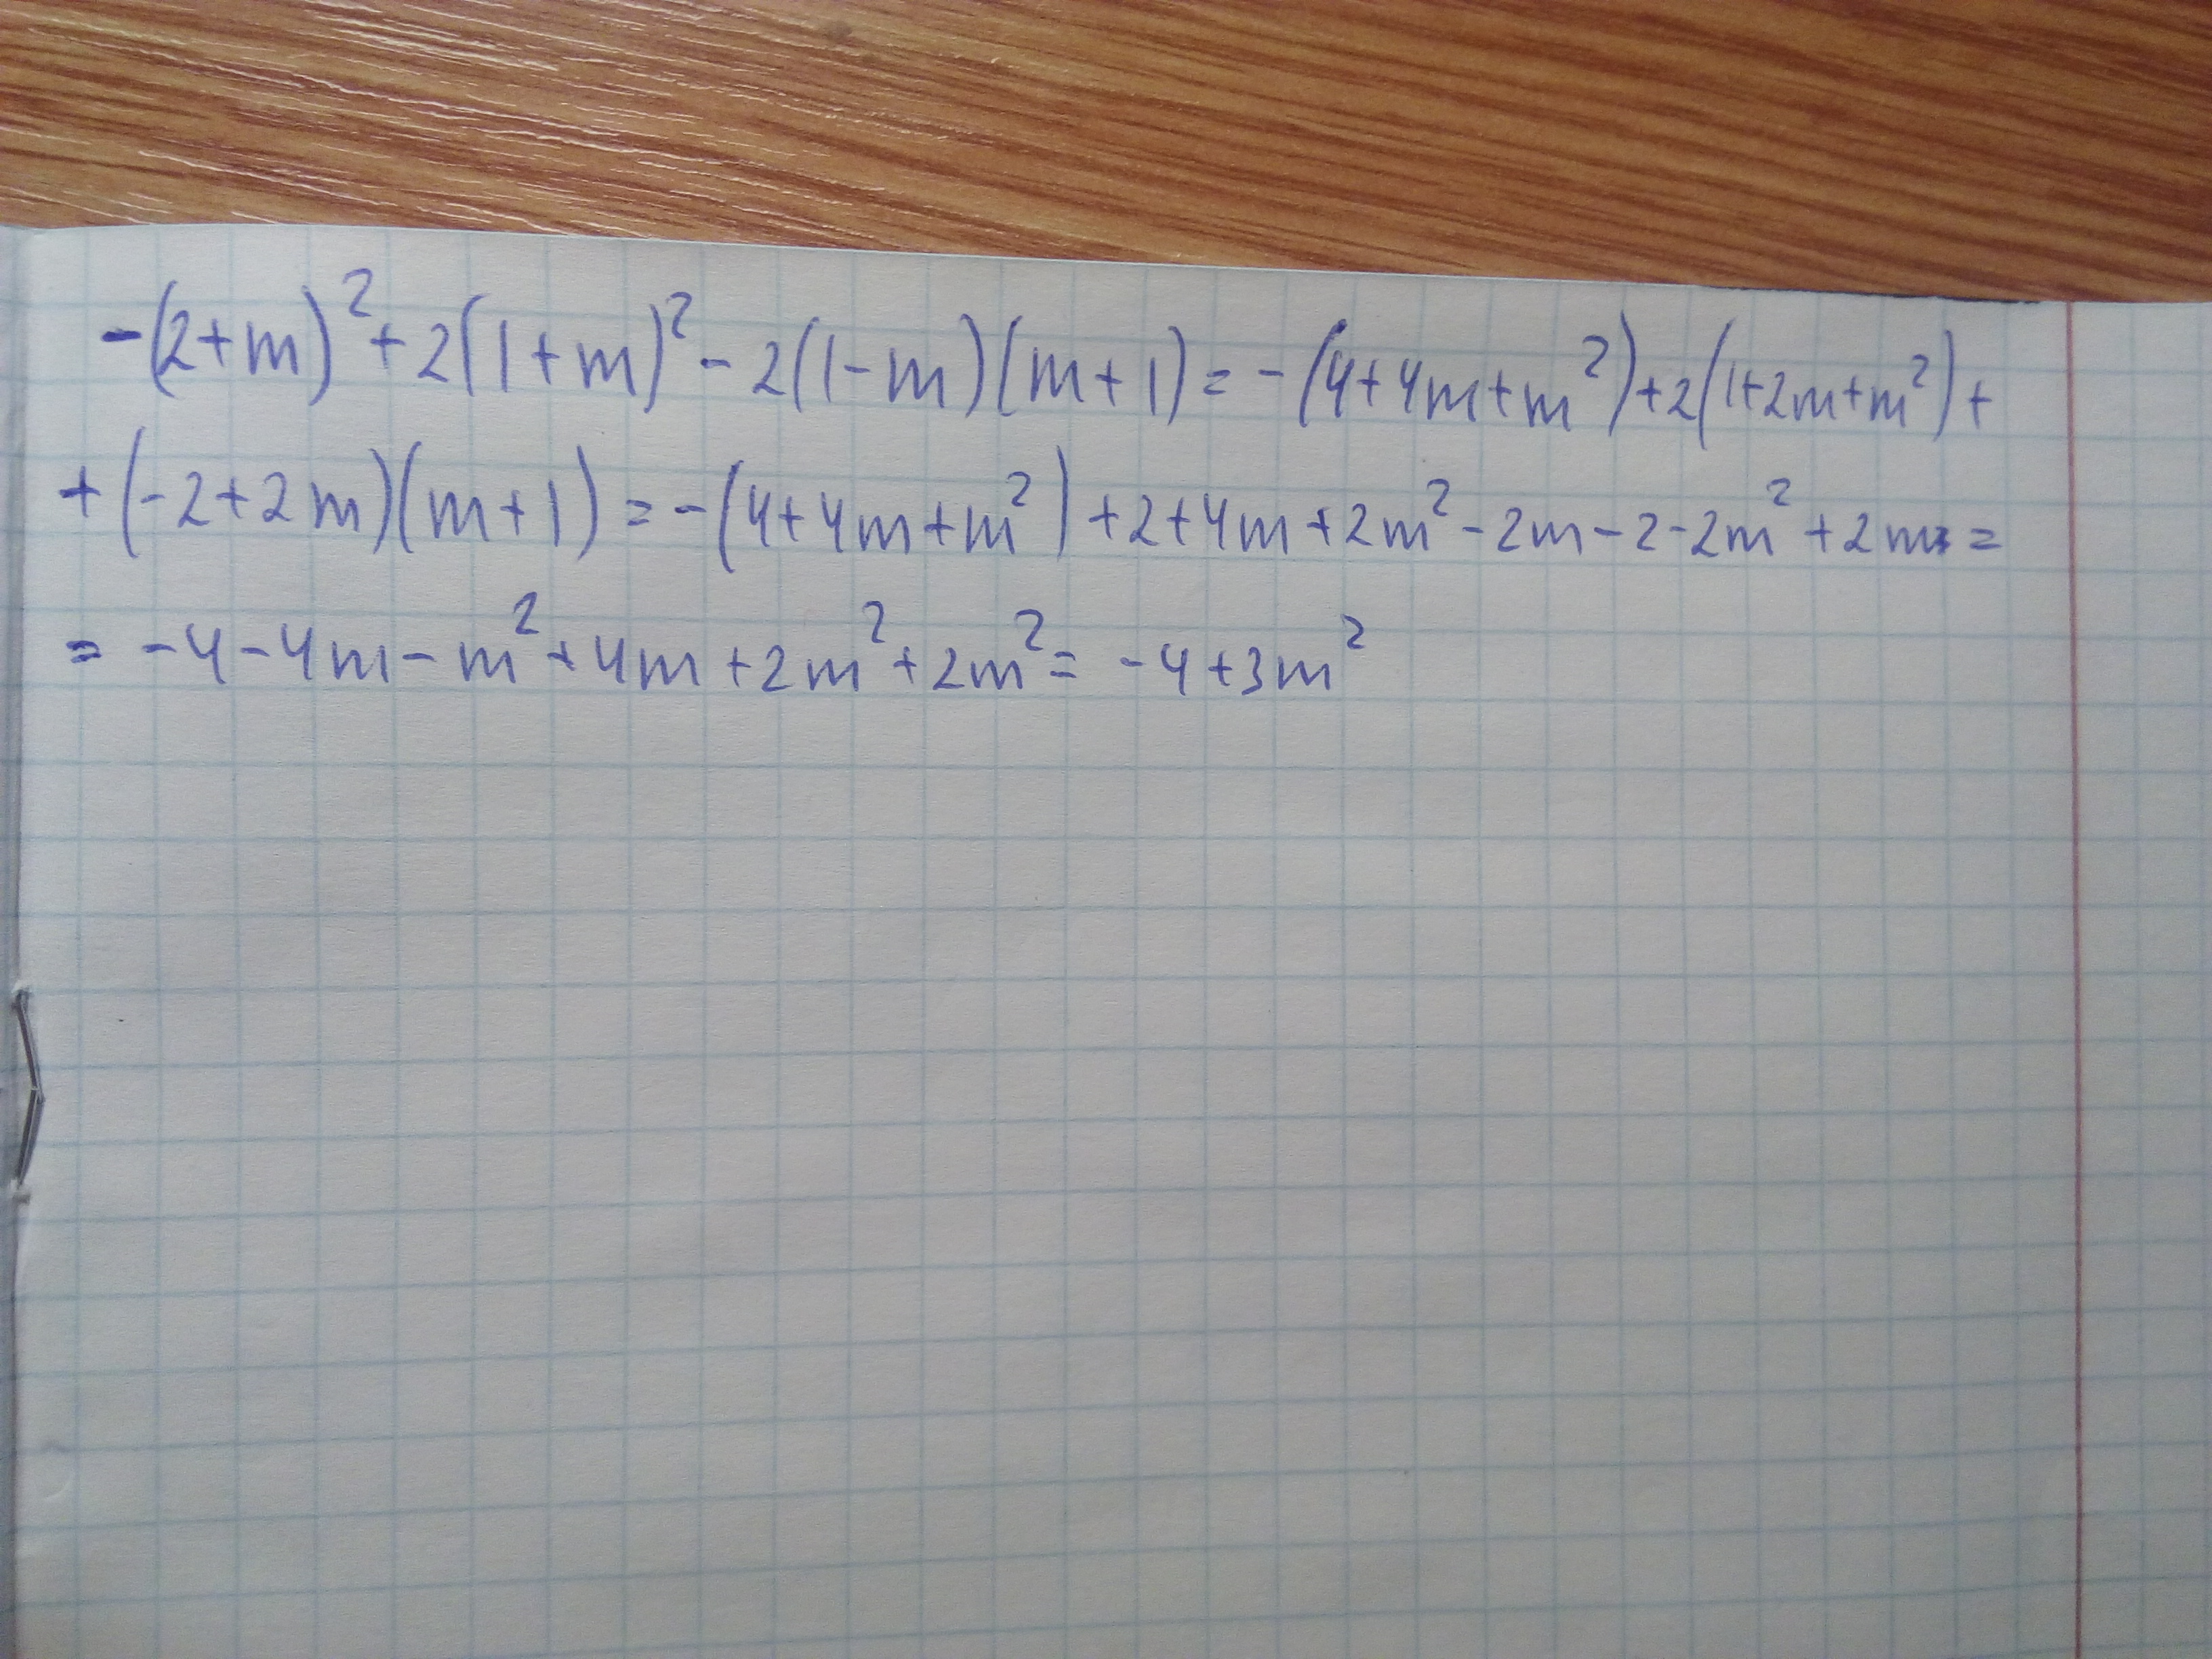 -(2+m)²+2(1+m)²-2(1-m)(m+1)=-(4+4m+m²)+2(1+2m+m²)+
+(-2+2m)(m+1)=-(4+4m+m²)+2+4m+2m²-2m-2-2m²+2m=
=-4-4m-m²+4m+2m²+2m²=-4+3m²